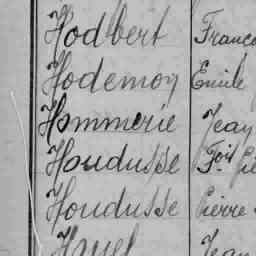 Hodbert Franço
Hodemon Emile
Hommerie Jean
Houdusse Fois Pie
Houdusse Pierre
Hauel Jean